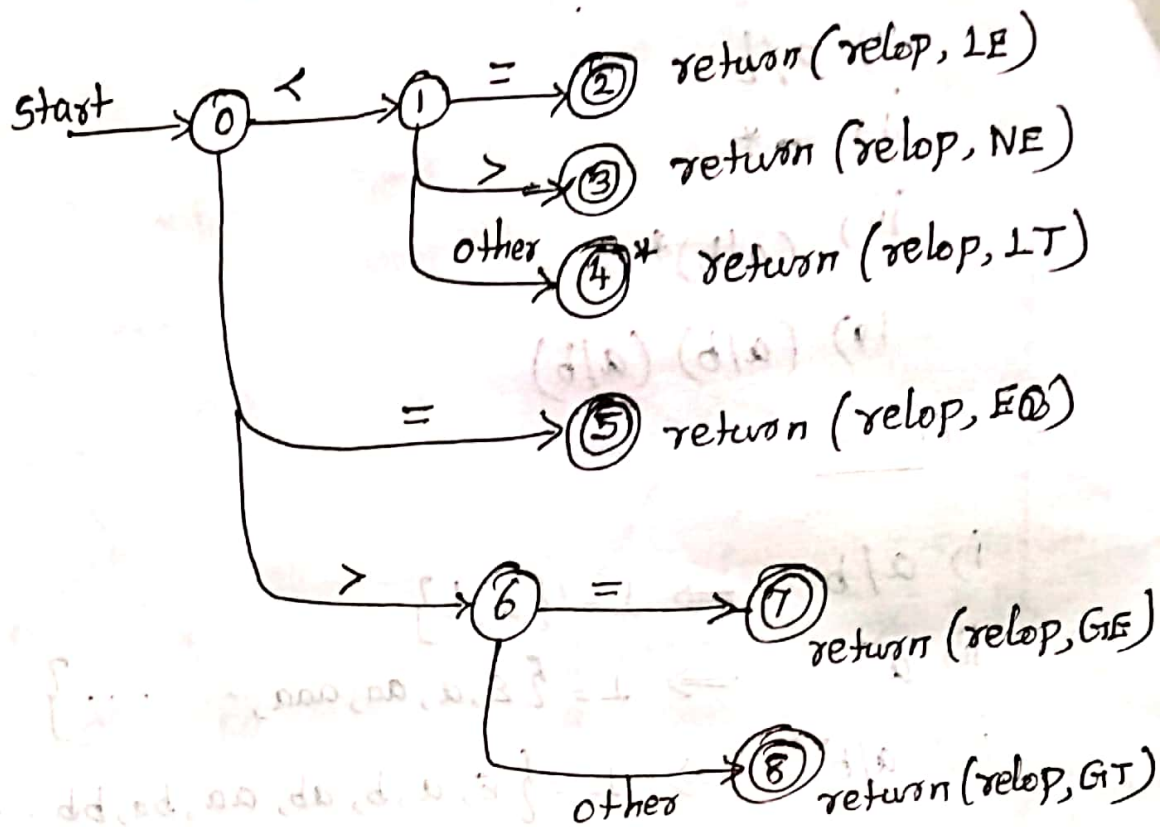 Start 0 < 1 = 2 return (relop, LE)
> 3 return (relop, NE)
other 4 * return (relop, LT)
= 5 return (relop, EQ)
> 6 = 7
return (relop, GE)
8
other return (relop, GT)